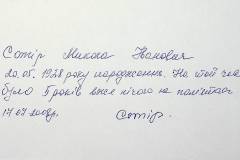 Сотір Микола Іванович
20.05. 1928 року народження. На той час
було 5 років вже нічого не пам'ятаю
17.07.2008р. Сотір.